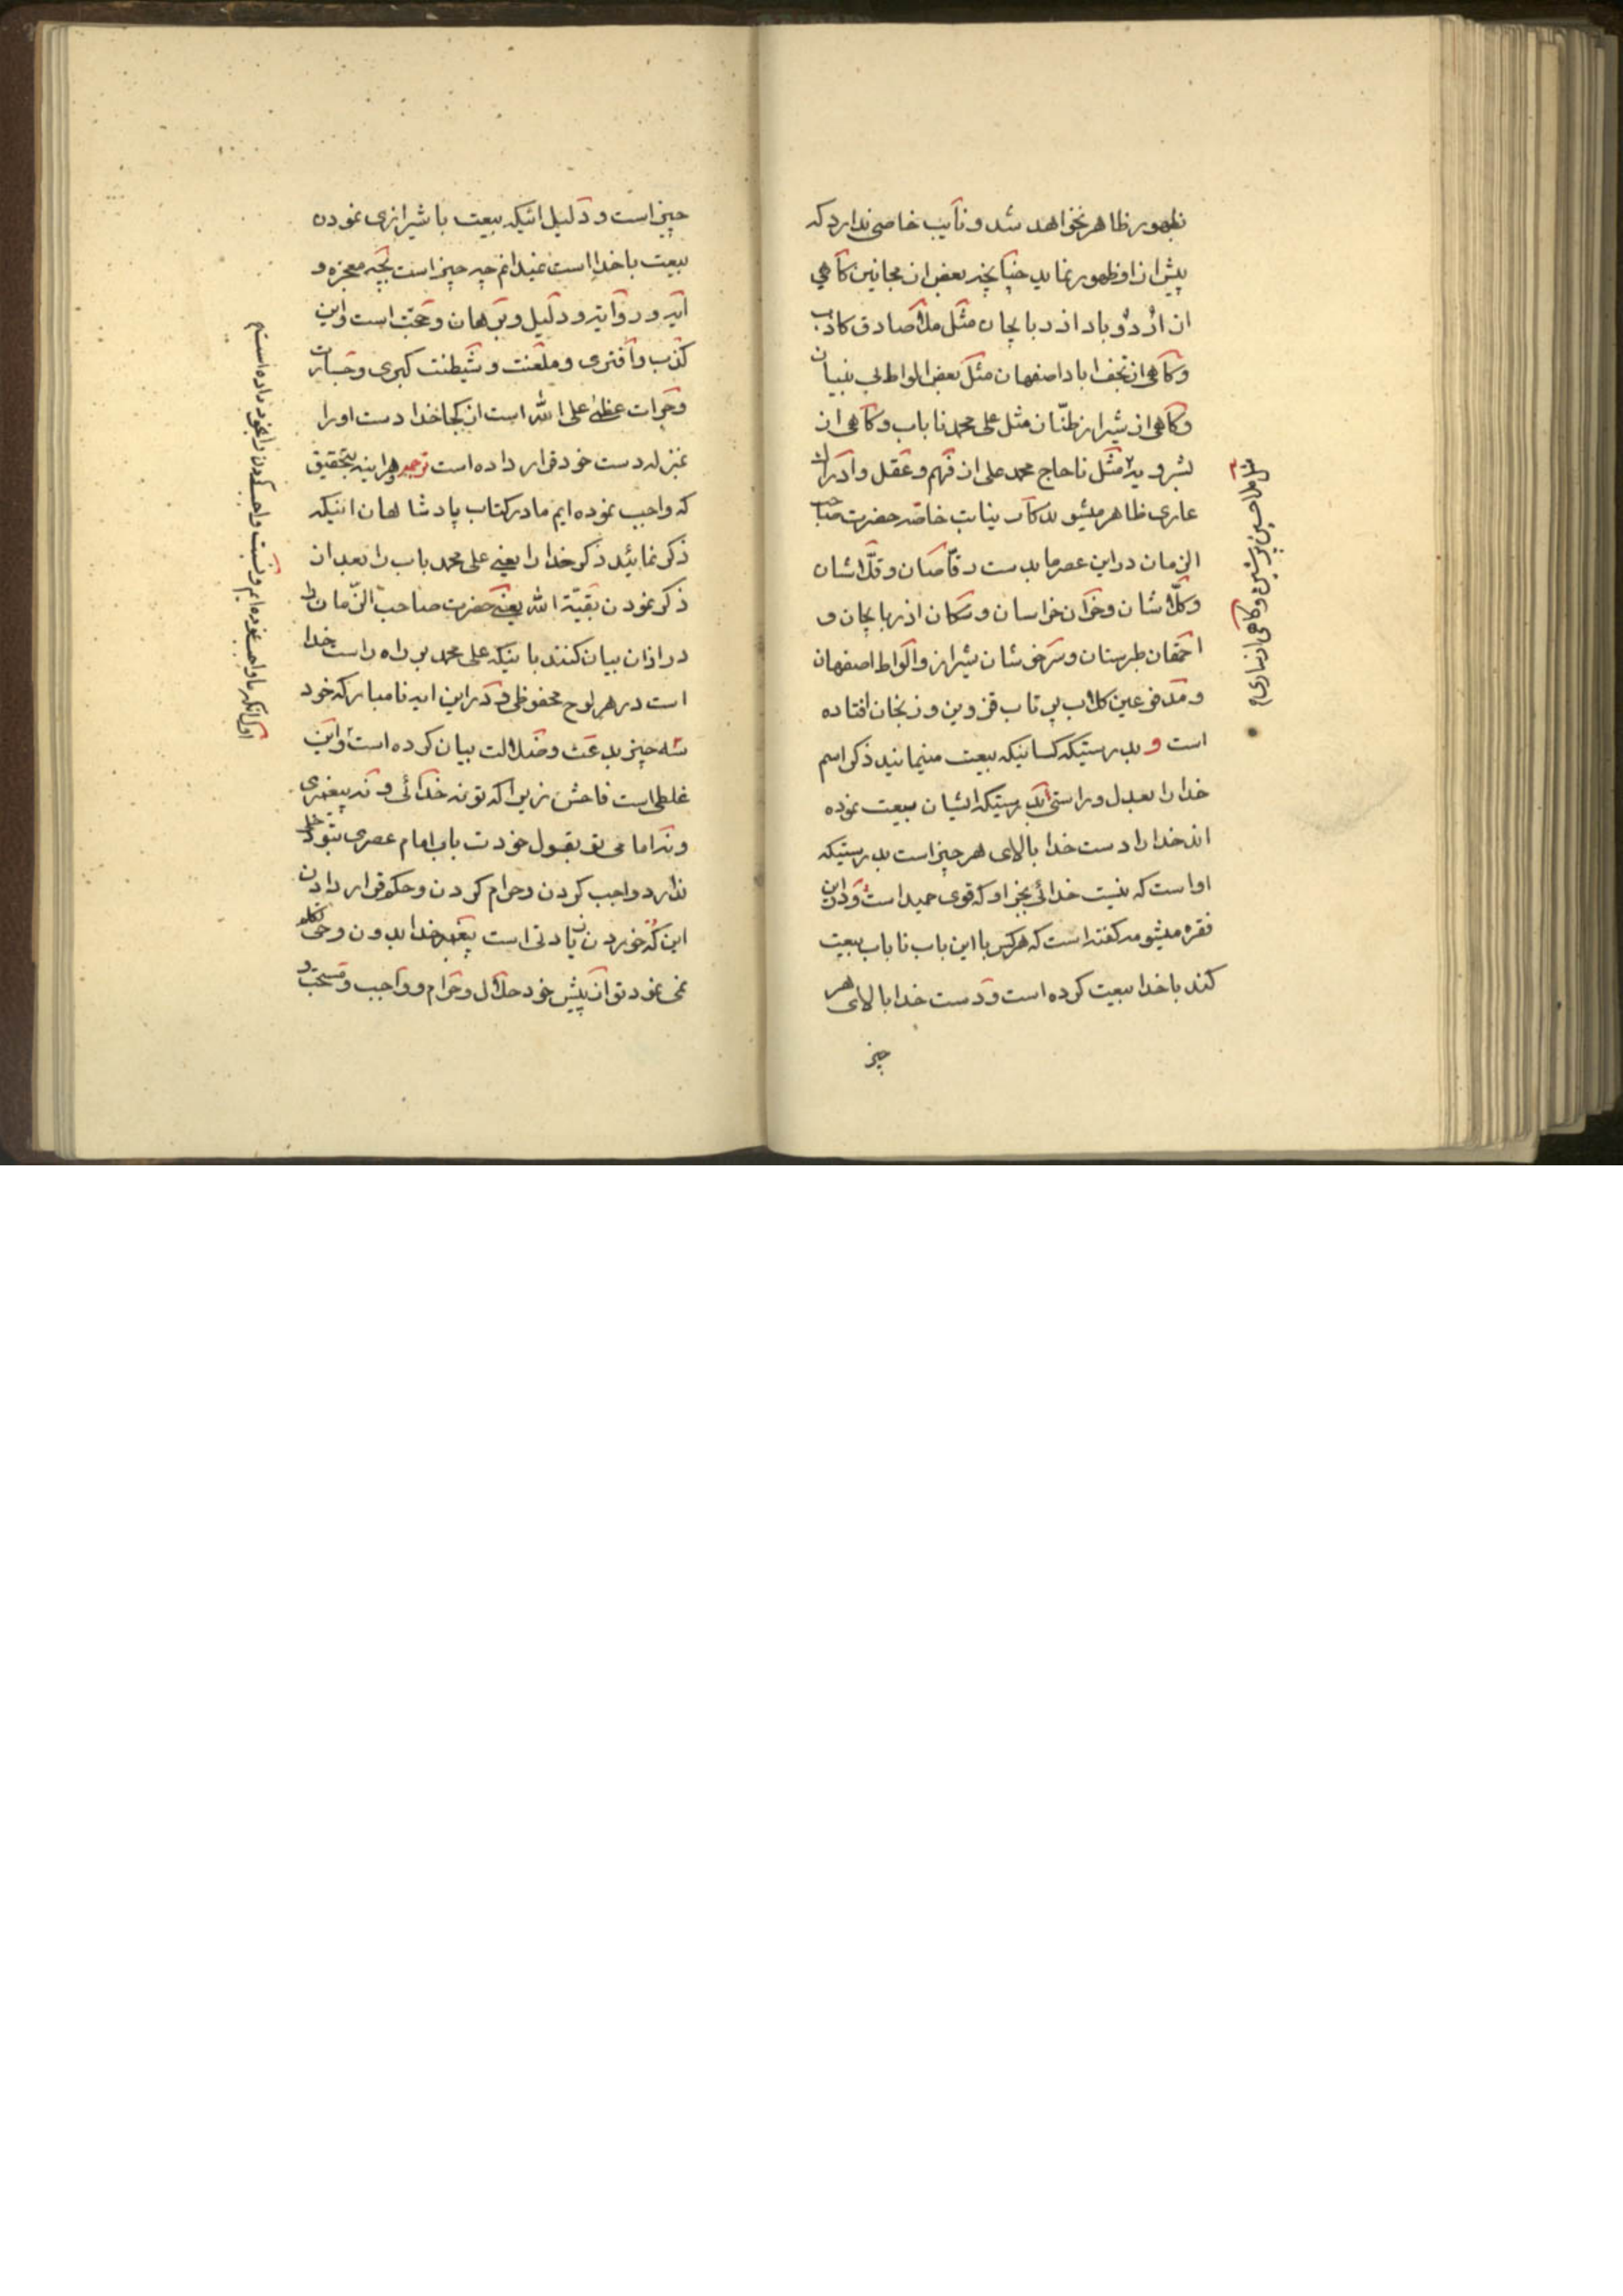 ظهور ظاهر نخواهد شد و نایب خاصی ندارد که
پیش از او ظهور نماید چنانچه بعض از مجانین گاهی
از اردوباد اذربایجان مثل ملا صادق کاذب
و گاهی از نجف اباد اصفهان مثل بعض الواط بی بنیان
و گاهی از شیراز طنّان مثل علی محمد ناباب و گاهی از
بشرویه مثل ناحاج محمد علی از فهم و عقل و ادراک
عاری ظاهر میشوند که نیابت خاصّه حضرت صاحب
الزمان در این عصر ما بدست رقّاصان و قلّاشان
و کلّاشان و خران خراسان و سکان اذربایجان و
احمقان طبرستان و سرخوشان شیراز و الواط اصفهان
و مدفوعین کلاب بی تاب قزوین و زنجان افتاده
است و بدرستیکه کسانیکه بیعت مینمایند ذکر اسم
خدا را بعدل و راستی بدرستیکه ایشان بیعت نموده
اند خدا را دست خدا بالای هر چیز است بدرستیکه
او است که نیست خدائی بجز او که قوی حمید است و در این
فقره میشومه گفته است که هر کس با این باب ناباب بیعت
کند با خدا بیعت کرده است و دست خدا بالای هر
چیز
مثل ملا حسین و گاهی از ساری
چیز است و دلیل اینکه بیعت با شیرازی نمودن
بیعت با خدا است نمیدانم چه چیز است بچه معجزه و
ایه و روایه و دلیل و برهان و حجّت است و این
کذب و افتری و ملعنت و شیطنت کبری و جسارت
و جرات عظمی علی الله است از کجا خدا دست او را
بمنزله دست خود قرار داده است ترجمه هراینه بتحقیق
که واجب نموده ایم ما در کتاب پادشاهان اینکه
ذکر نمائید ذکر خدا را یعنی علی محمد باب را بعد از
ذکر نمودن بقیّة الله یعنی حضرت صاحب الزّمان را
در اذان بیان کنند باینکه علی محمد بر راه راست خدا
است در هر لوح محفوظی و در این ایه نامبارکه خود
سه چیز بدعت و ضلالت بیان کرده است و این
غلطی است فاحش زیرا که تو نه خدائی و نه پیغمبری
و نه امامی تو بقول خودت باب امام عصری بتو دخلی
ندارد واجب کردن و حرام کردن و حکم قرار دادن
این که خوردن زیادتی است پیغمبر خدا بدون وحی تکلم
نمی نمود تو از پیش خود حلال و حرام و واجب و مستحب
اول انکه ما واجب نموده ایم و نسبت واجب کردن را بخود داده است